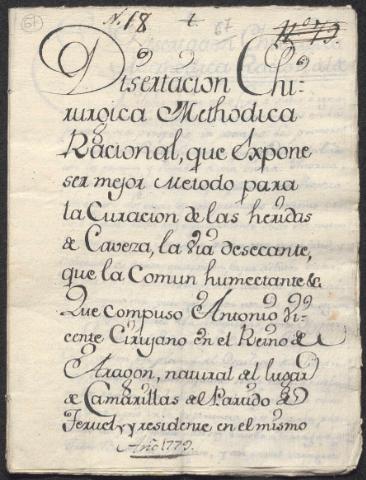 67
N. 18
t.
67
N.º 73.
Disertacion Chi-
rurgica Methodica
Racional, que expone
ser mejor Metodo para
la Curacion de las heridas
de Caveza, la via desecante,
que la Comun humectante &c.
Que compuso Antonio Vi-
cente Cirujano en el Reino de
Aragon, natural del lugar
de Camarillas del Partido de
Teruel, y residente en el mismo
Año 1779.